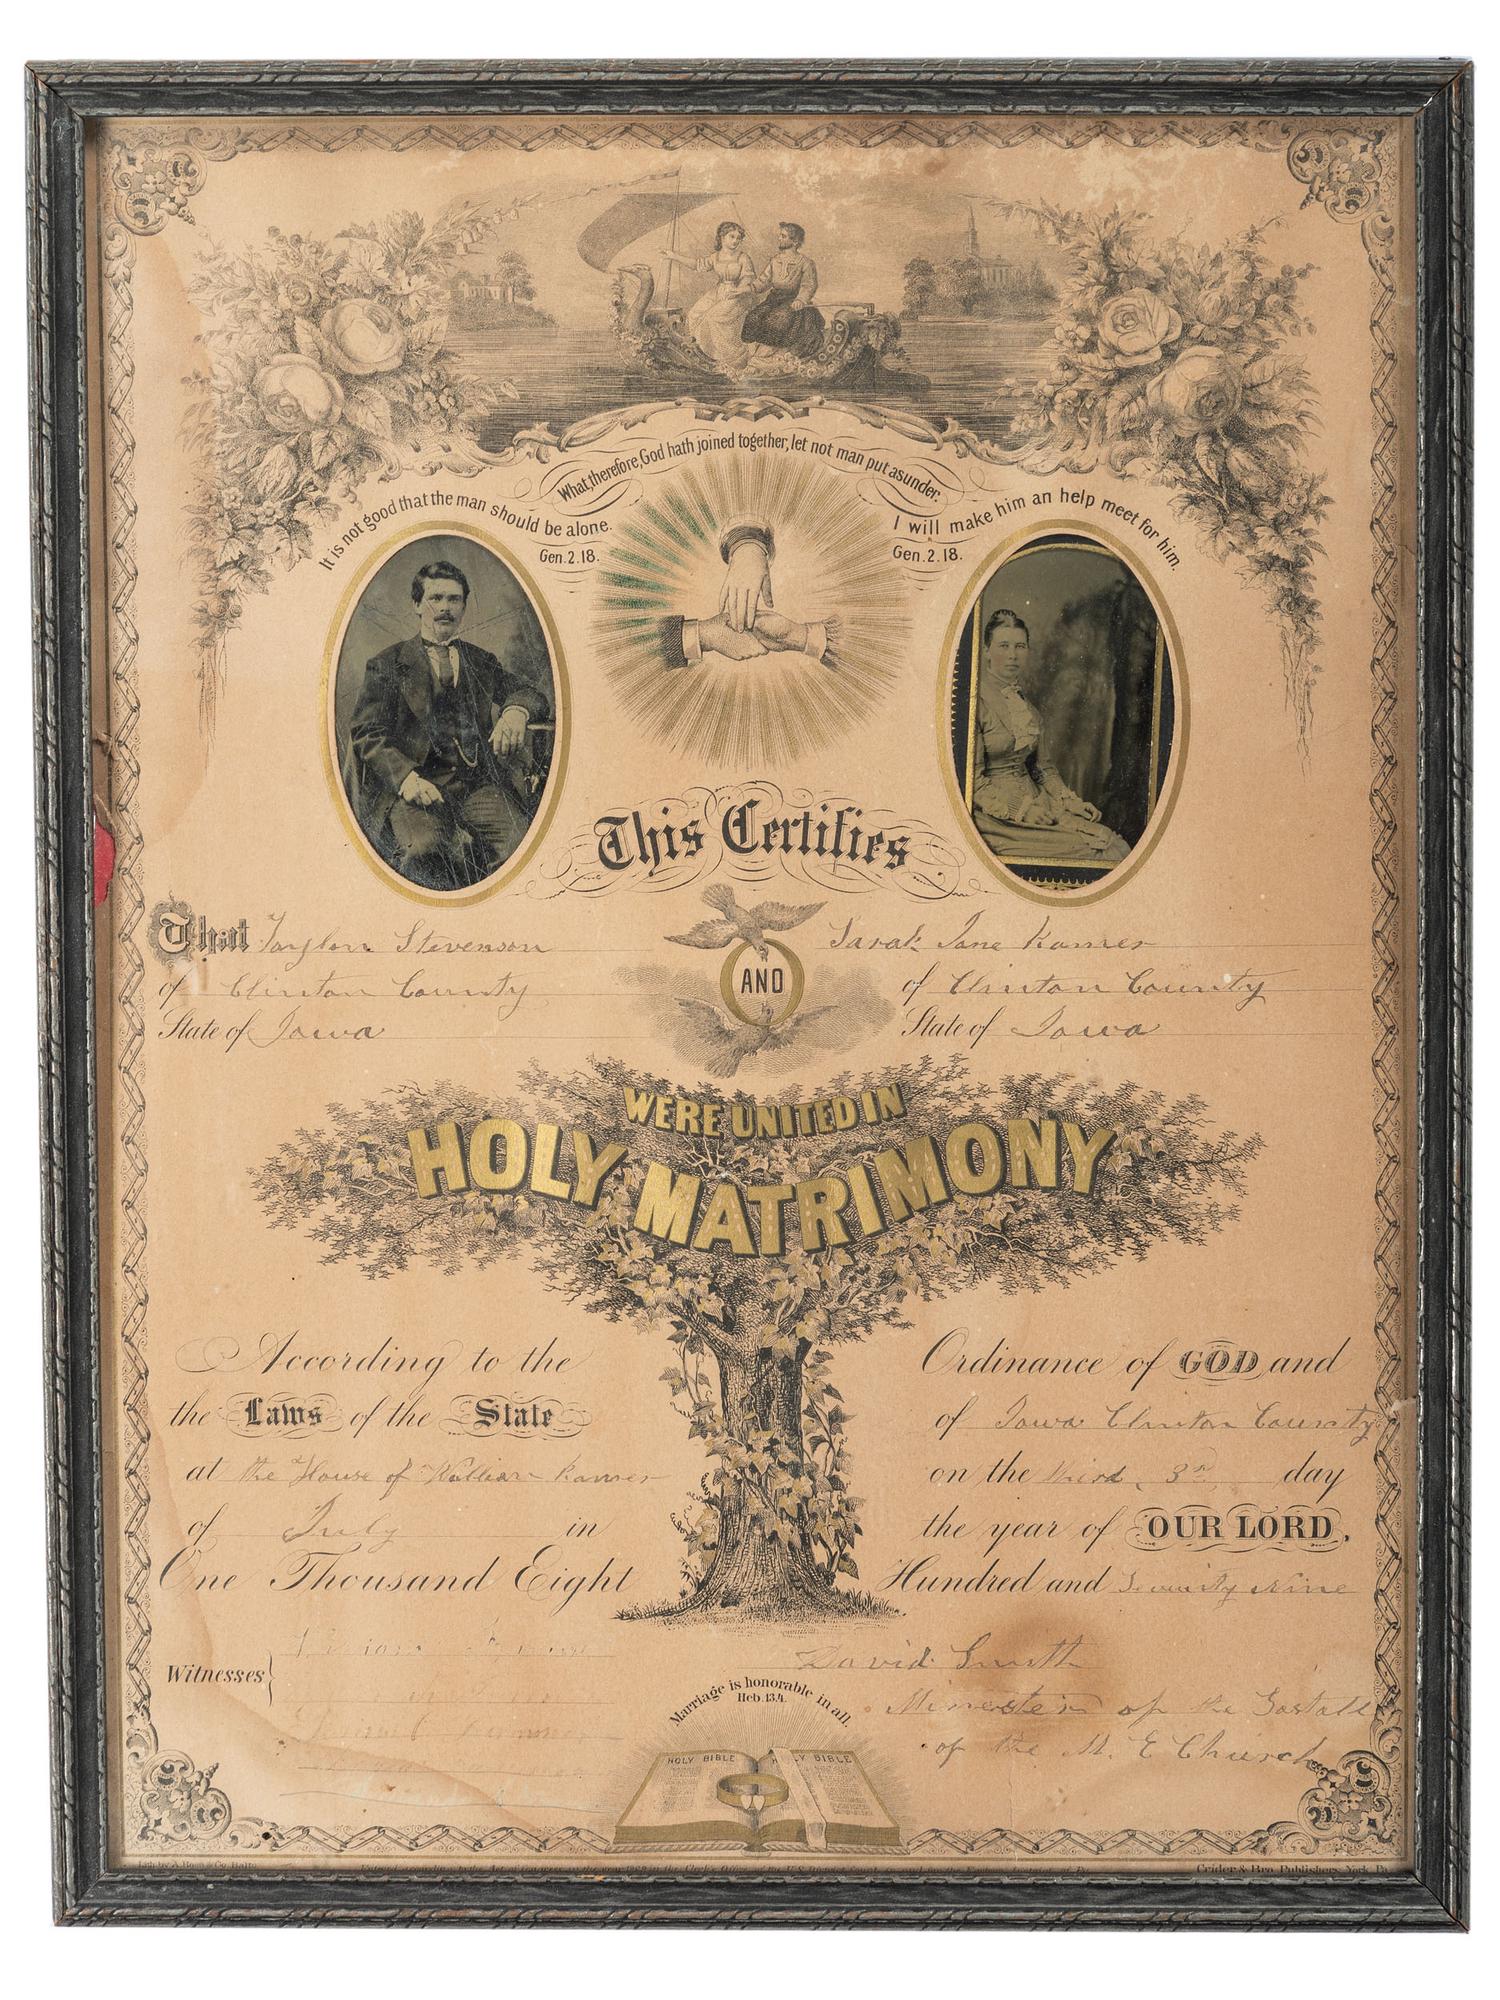 What, therefore, God hath joined together, let not man put asunder.
It is not good that the man should be alone.
Gen. 2. 18.
I will make him an help meet for him.
Gen. 2. 18.
This Certifies
That Taylor Stevenson
AND
Sarah Jane Kamer
of Clinton County
of Clinton County
State of Iowa
State of Iowa
WERE UNITED IN
HOLY MATRIMONY
According to the Ordinance of GOD and
the Laws of the State of Iowa Clinton County
at the House of William Kamer on the third, 3rd day
of July in the year of OUR LORD,
One Thousand Eight Hundred and Seventy Nine
Witnesses
David Smith
Minester of the
of the M. E Church
Marriage is honorable in all.
Heb. 13.4.
HOLY BIBLE HOLY BIBLE
Lith. by A. Hoen & Co. Balto.
Crider & Bro. Publishers, York, Pa.